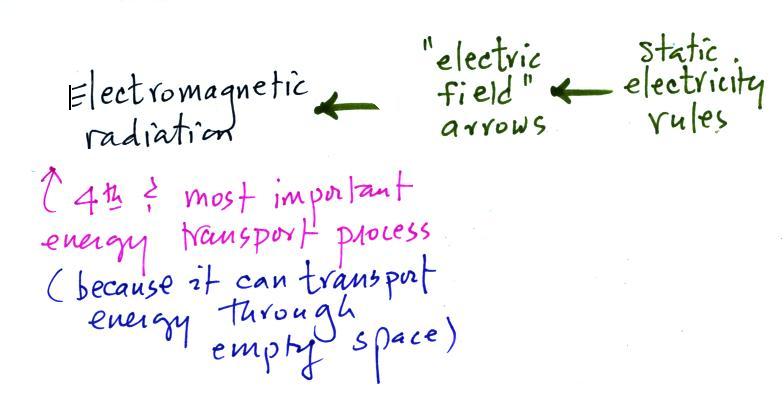 Electromagnetic radiation
"electric field" arrows
static electricity rules
4th & most important
energy transport process
(because it can transport
energy through
empty space)